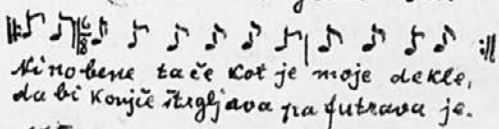 6/8
Ni nobene take kot je moje dekle,
da bi konjče štrgljava pa futrava je.